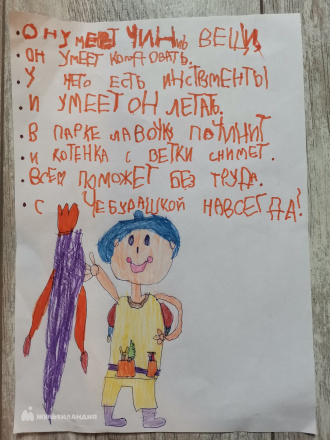 ОН УМЕЕТ ЧИНИТЬ ВЕЩИ,
ОН УМЕЕТ КОЛДОВАТЬ.
У НЕГО ЕСТЬ ИНСТРУМЕНТЫ
И УМЕЕТ ОН ЛЕТАТЬ.
В ПАРКЕ ЛАВОЧКУ ПОЧИНИТ
И КОТЕНКА С ВЕТКИ СНИМЕТ.
ВСЕМ ПОМОЖЕТ БЕЗ ТРУДА.
С ЧЕБУРАШКОЙ НАВСЕГДА!
МУЛЬТИЛАНДИЯ